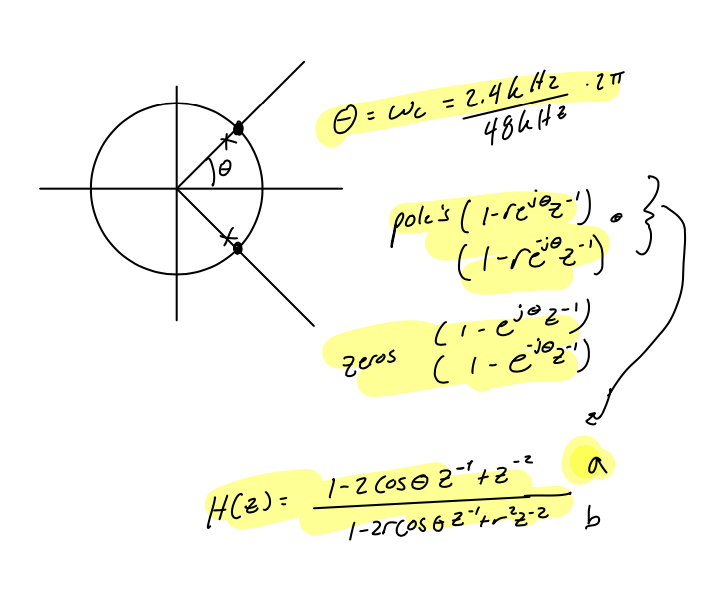 θ = ωc = 2.4kHz / 48kHz · 2π
θ
pole's (1-re^jθ z^-1) •
(1-re^-jθ z^-1)
zeros (1-e^jθ z^-1)
(1-e^-jθ z^-1)
H(z) = 1-2cosθ z^-1 + z^-2 / 1-2rcosθ z^-1 + r^2 z^-2
a
b